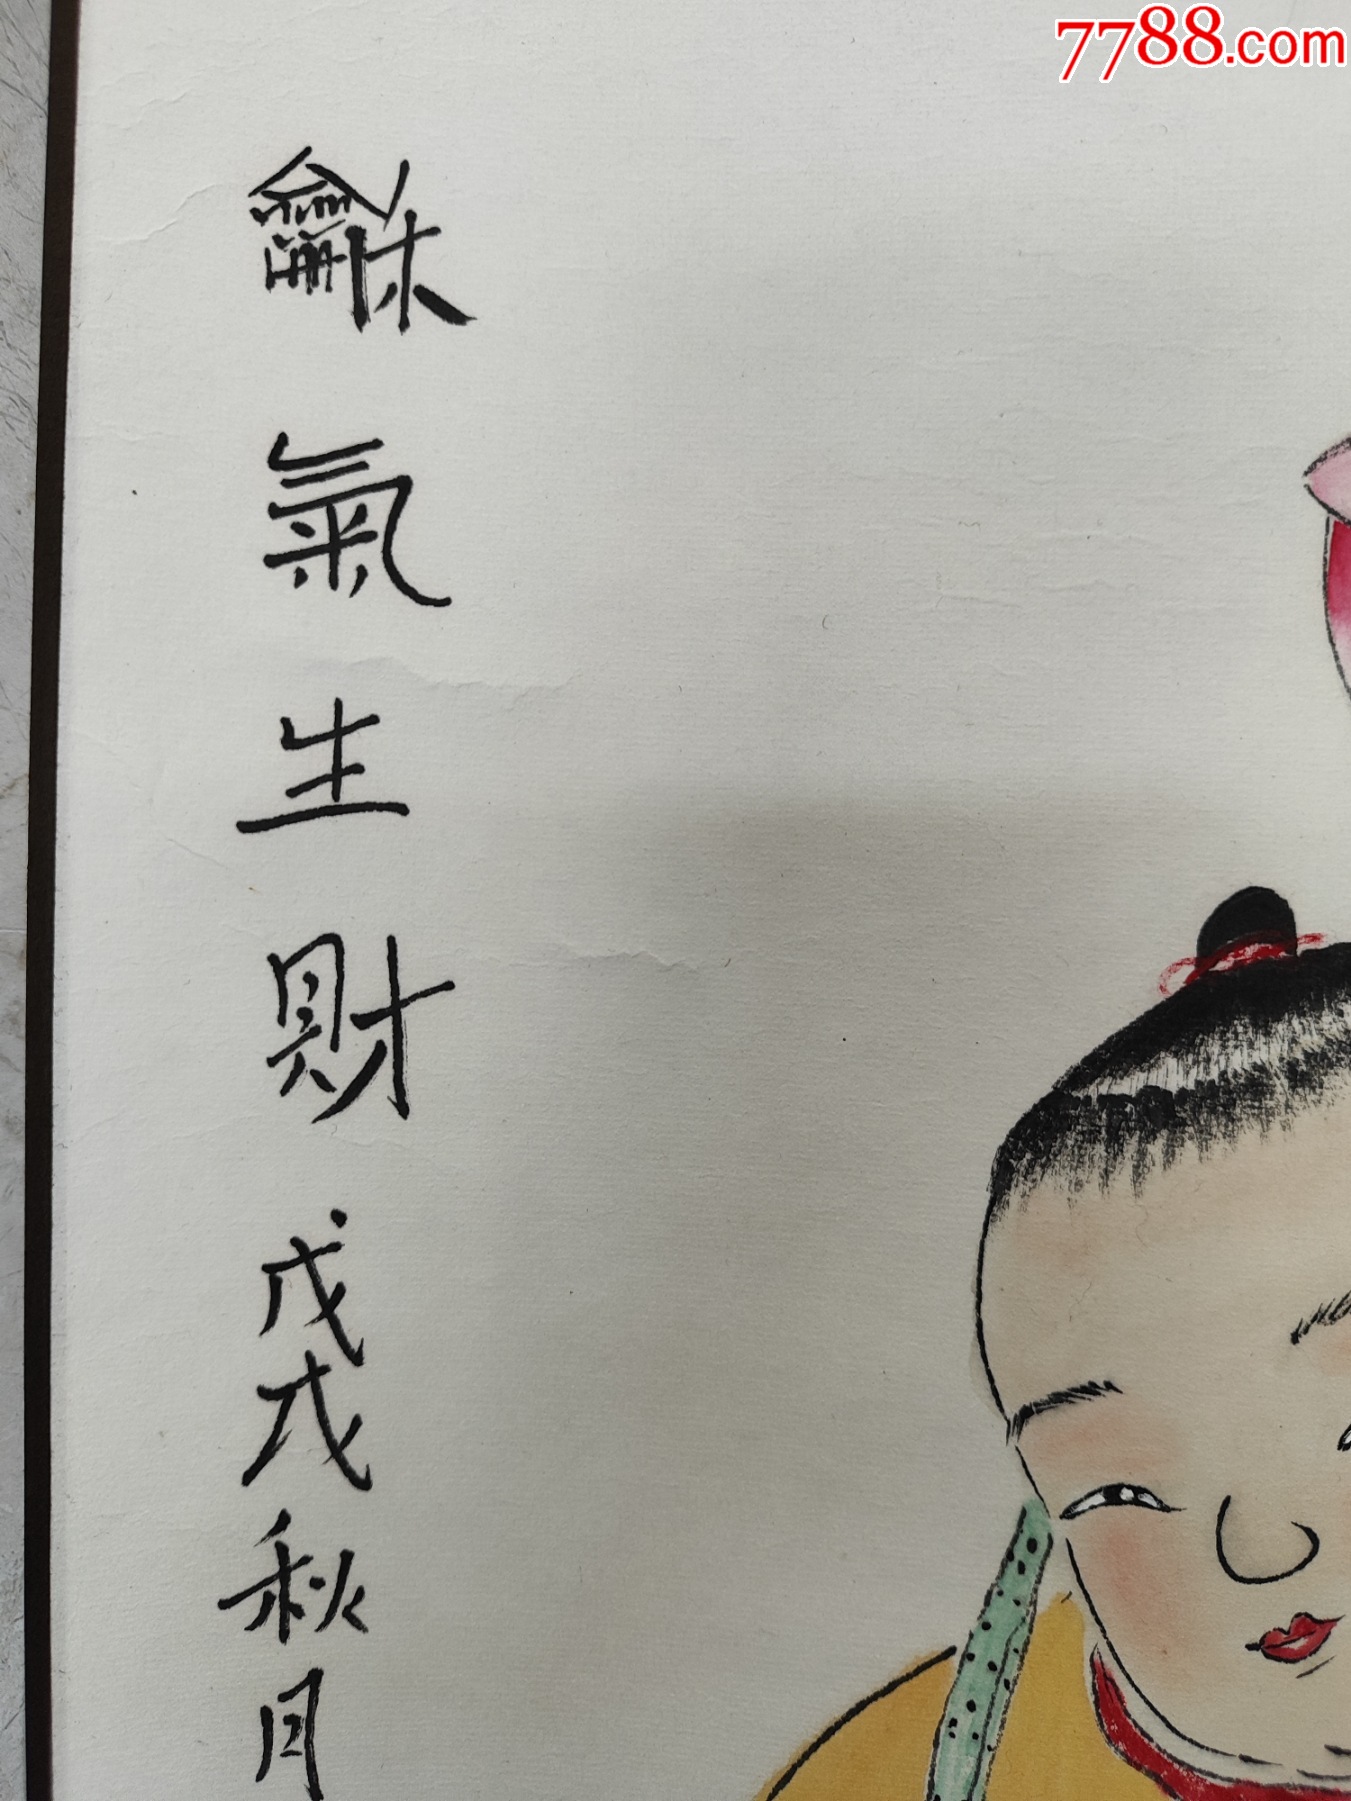 7788.com
龢氣生財戊戌秋月